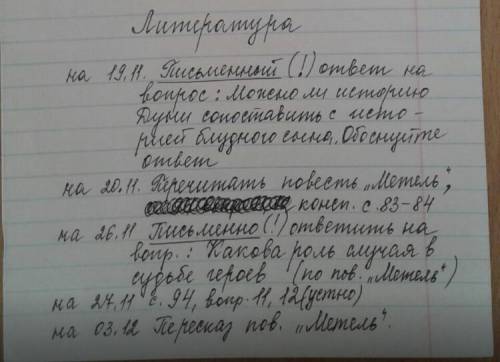 Литература
на 19.11. Письменный (!) ответ на
вопрос: Можно ли историю
Дуни сопоставить с исто-
рией блудного сына. Обоснуйте
ответ
на 20.11. Перечитать повесть „Метель",
консп. с. 83-84
на 26.11 Письменно (!) ответить на
вопр.: Какова роль случая в
судьбе героев (по пов. „Метель")
на 27.11 с. 94, вопр. 11, 12 (устно)
на 03.12 Пересказ пов. „Метель".